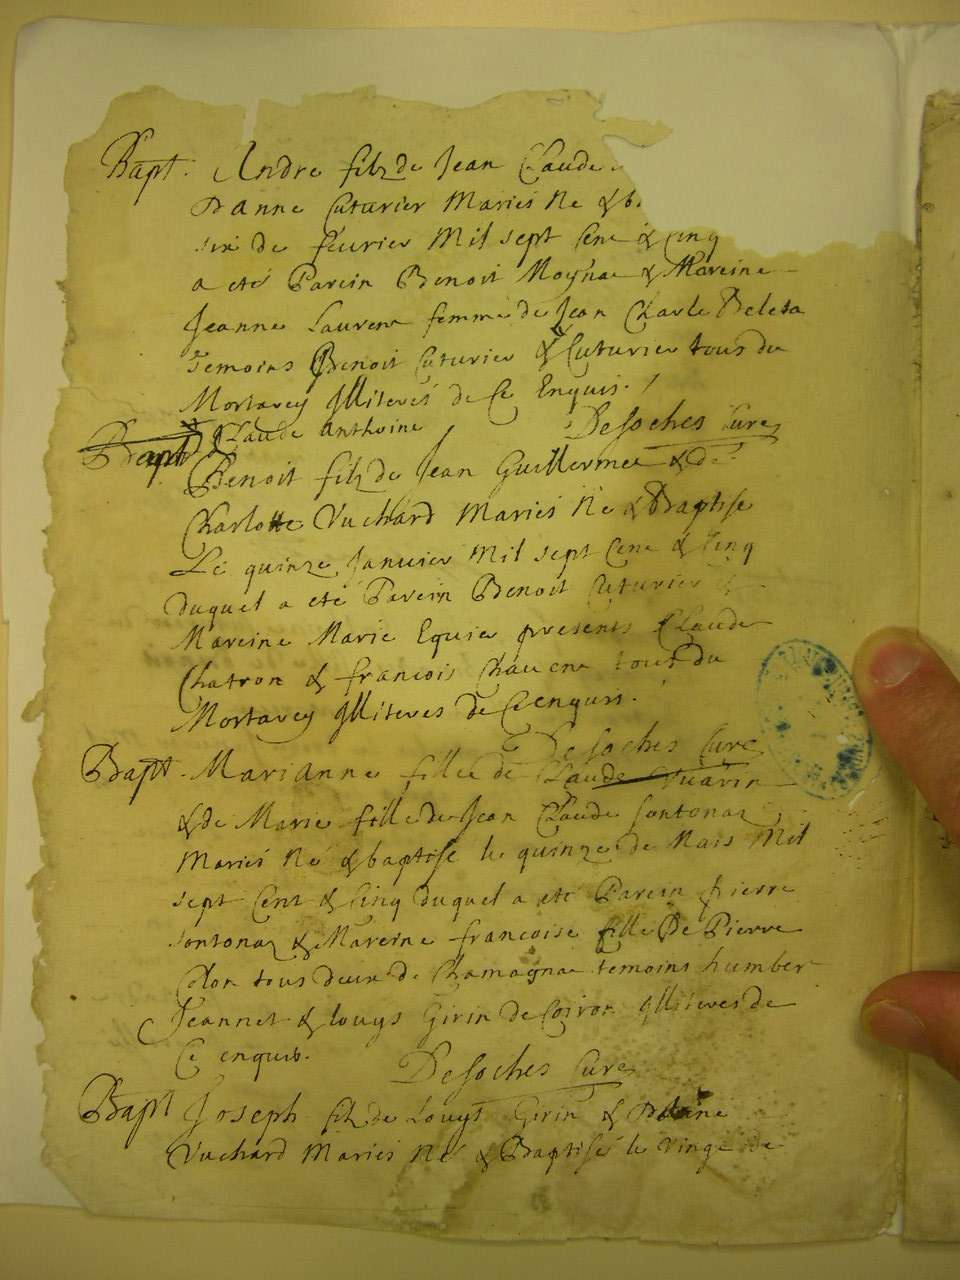 Bapt. Andre filz de Jean Claude
Danne Cuturier Mariés Né & b
sixe de feurier Mil sept Cent & Cinq
a eté Parein Benoit Moyna & Mareine
Jeanne Laurent femme de Jean Charle
Temoins Benoit Cuturier & Cuturier tous du
Mortarey Illiterés de Ce Enquis.
Claude Anthoine Desoches Cure
Bapt Benoit filz de Jean Guillermet & de
Charlotte Vuchard Mariés Né & Baptise
Le quinze Januier Mil sept Cent & Cinq
duquel a eté Parein Benoit Cuturier &
Mareine Marie Equier presents Claude
Chatron & francois tous du
Mortarey Illiteres de Ce enquis.
Desoches Cure
Bapt. Marianne fille de Claude
& de Marie fille de Jean Claude Sontonaz
Mariés Né & baptise le quinze de Mars Mil
sept Cent & Cinq duquel a eté Parein pierre
Sontonaz & Mareine francoise fille De Pierre
tous deux de Chamagna temoins humber
Jeannet & louys Girin de Coiron Illiteres de
Ce enquis.
Desoches Cure
Bapt Joseph filz de Louys Girin &
Vuchard Mariés Né & Baptisé le Vingt de